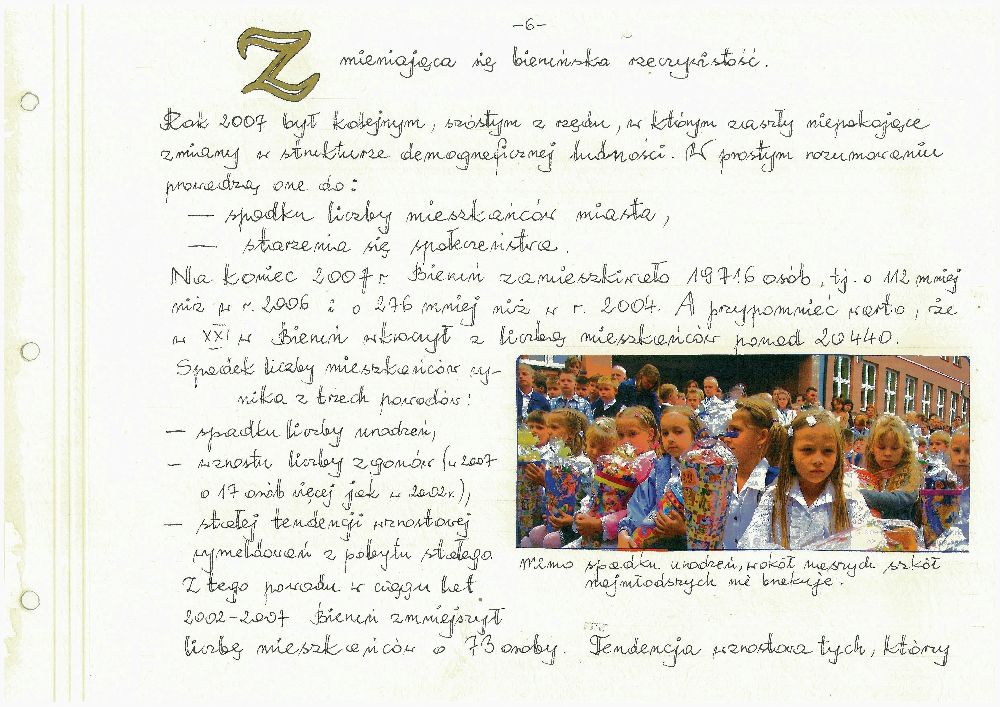 -6-
Zmieniająca się bieruńska rzeczywistość.
Rok 2007 był kolejnym, szóstym z rzędu, w którym zaszły niepokojące
zmiany w strukturze demograficznej ludności. W prostym rozumowaniu
prowadzą one do:
— spadku liczby mieszkańców miasta,
— starzenia się społeczeństwa.
Na koniec 2007 r. Bieruń zamieszkiwało 19716 osób, tj. o 112 mniej
niż w r. 2006 i o 276 mniej niż w r. 2004. A przypomnieć warto, że
w XXI w Bieruń wkroczył z liczbą mieszkańców ponad 20 440.
Spadek liczby mieszkańców wy-
nika z trzech powodów:
— spadku liczby urodzeń,
— wzrostu liczby zgonów (w 2007
o 17 osób więcej jak w 2002r.),
— stałej tendencji wzrostowej
wymeldowań z pobytu stałego.
Z tego powodu w ciągu lat
2002-2007 Bieruń zmniejszył
liczbę mieszkańców o 73 osoby. Tendencja wzrostowa tych, którzy
Mimo spadku urodzeń, wokół naszych szkół
najmłodszych nie brakuje.